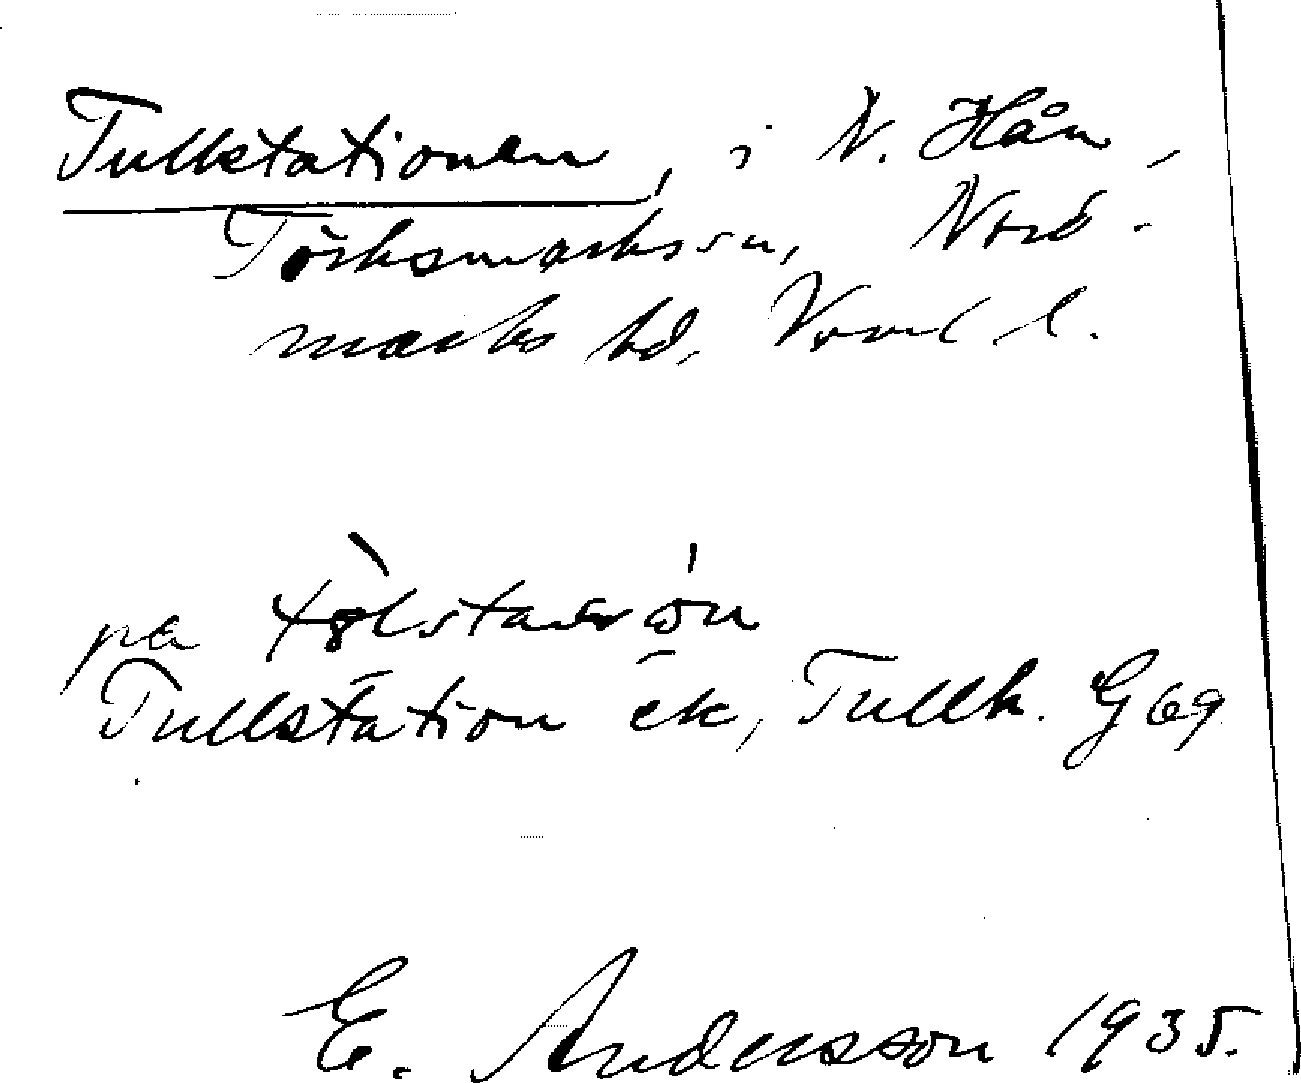 Tullstationen, i N. Hån,
Töcksmarks sn, Nord-
marks hd, Vrml l.
på
Tullstation ek, Tullk. G69
E. Andersson 1935.